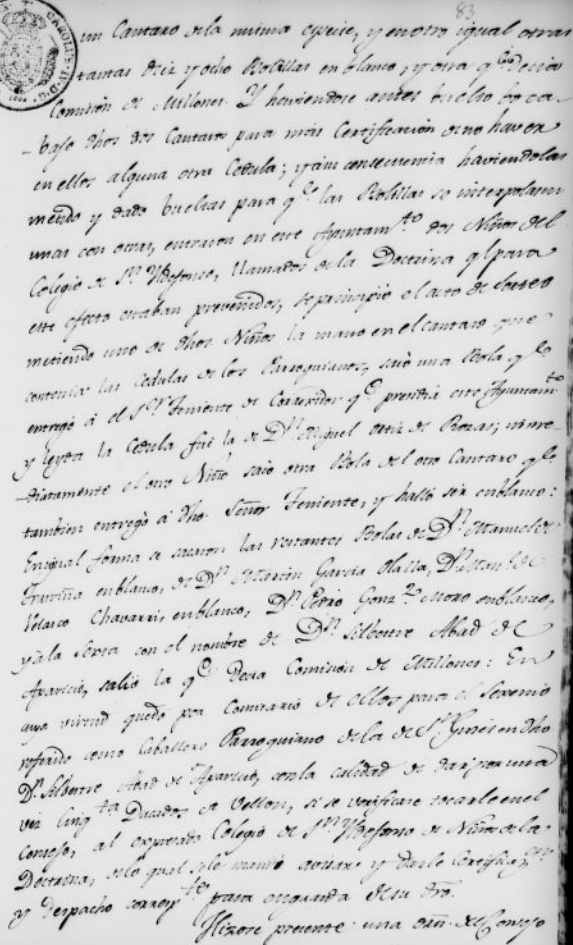 83
un Cantaro de la misma especie, y en otro igual otras
tantas diez y ocho Bolillas en blanco, y otra qe decia
Comision de Millones. Y haviendose antes buelto boca
baxo dhos dos Cantaros para más Certificacion de no haver
en ellos alguna otra Cedula; y en consecuencia haviendolas
metido y dado bueltas para qe las Bolillas se interpolasen
unas con otras, entraron en este Ayuntamto dos Niños del
Colegio de Sn Yldefonso, llamados de la Doctrina q para
este efecto estaban prevenidos, se principio el acto de sorteo
metiendo uno de dhos Niños la mano en el cantaro que
contenia las Cedulas de los Parroquianos, sacó una Bola qe
entregó á el Sr Teniente de Corregidor qe presidia este Ayuntamto
y leyda la Cedula fué la de Dn Miguel Ortiz de Rozas; inme-
diatamente el otro Niño sacó otra Bola del otro Cantaro qe
tambien entregó á dho Señor Teniente, y halló ser en blanco:
En igual forma se sacaron las restantes Bolas de Dn Manuel de
en blanco, de Dn Martin Garcia Olalla, Dn Manl de
Velasco Chavarri, en blanco, Dn Pedro Gonz Moro en blanco,
y á la Sexta con el nombre de Dn Silbestre Abad de
Aparicio, salió la qe decia Comision de Millones: En
cuya virtud quedó por Comisario de ellos para el Sexenio
referido como Caballero Parroquiano de la de Sn Gines en dho
Dn Silbestre Abad de Aparicio, con la calidad de dar por una
vez cinqta Ducados de Vellon, si se verificare tocarle en el
Consejo, al expresado Colegio de Sn Yldefonso de Niños de la
Doctrina, de lo qual se le mandó avisar y darle Certificazon
y Despacho correspte para en guarda de su dro.
Hizose presente una orn. del Consejo